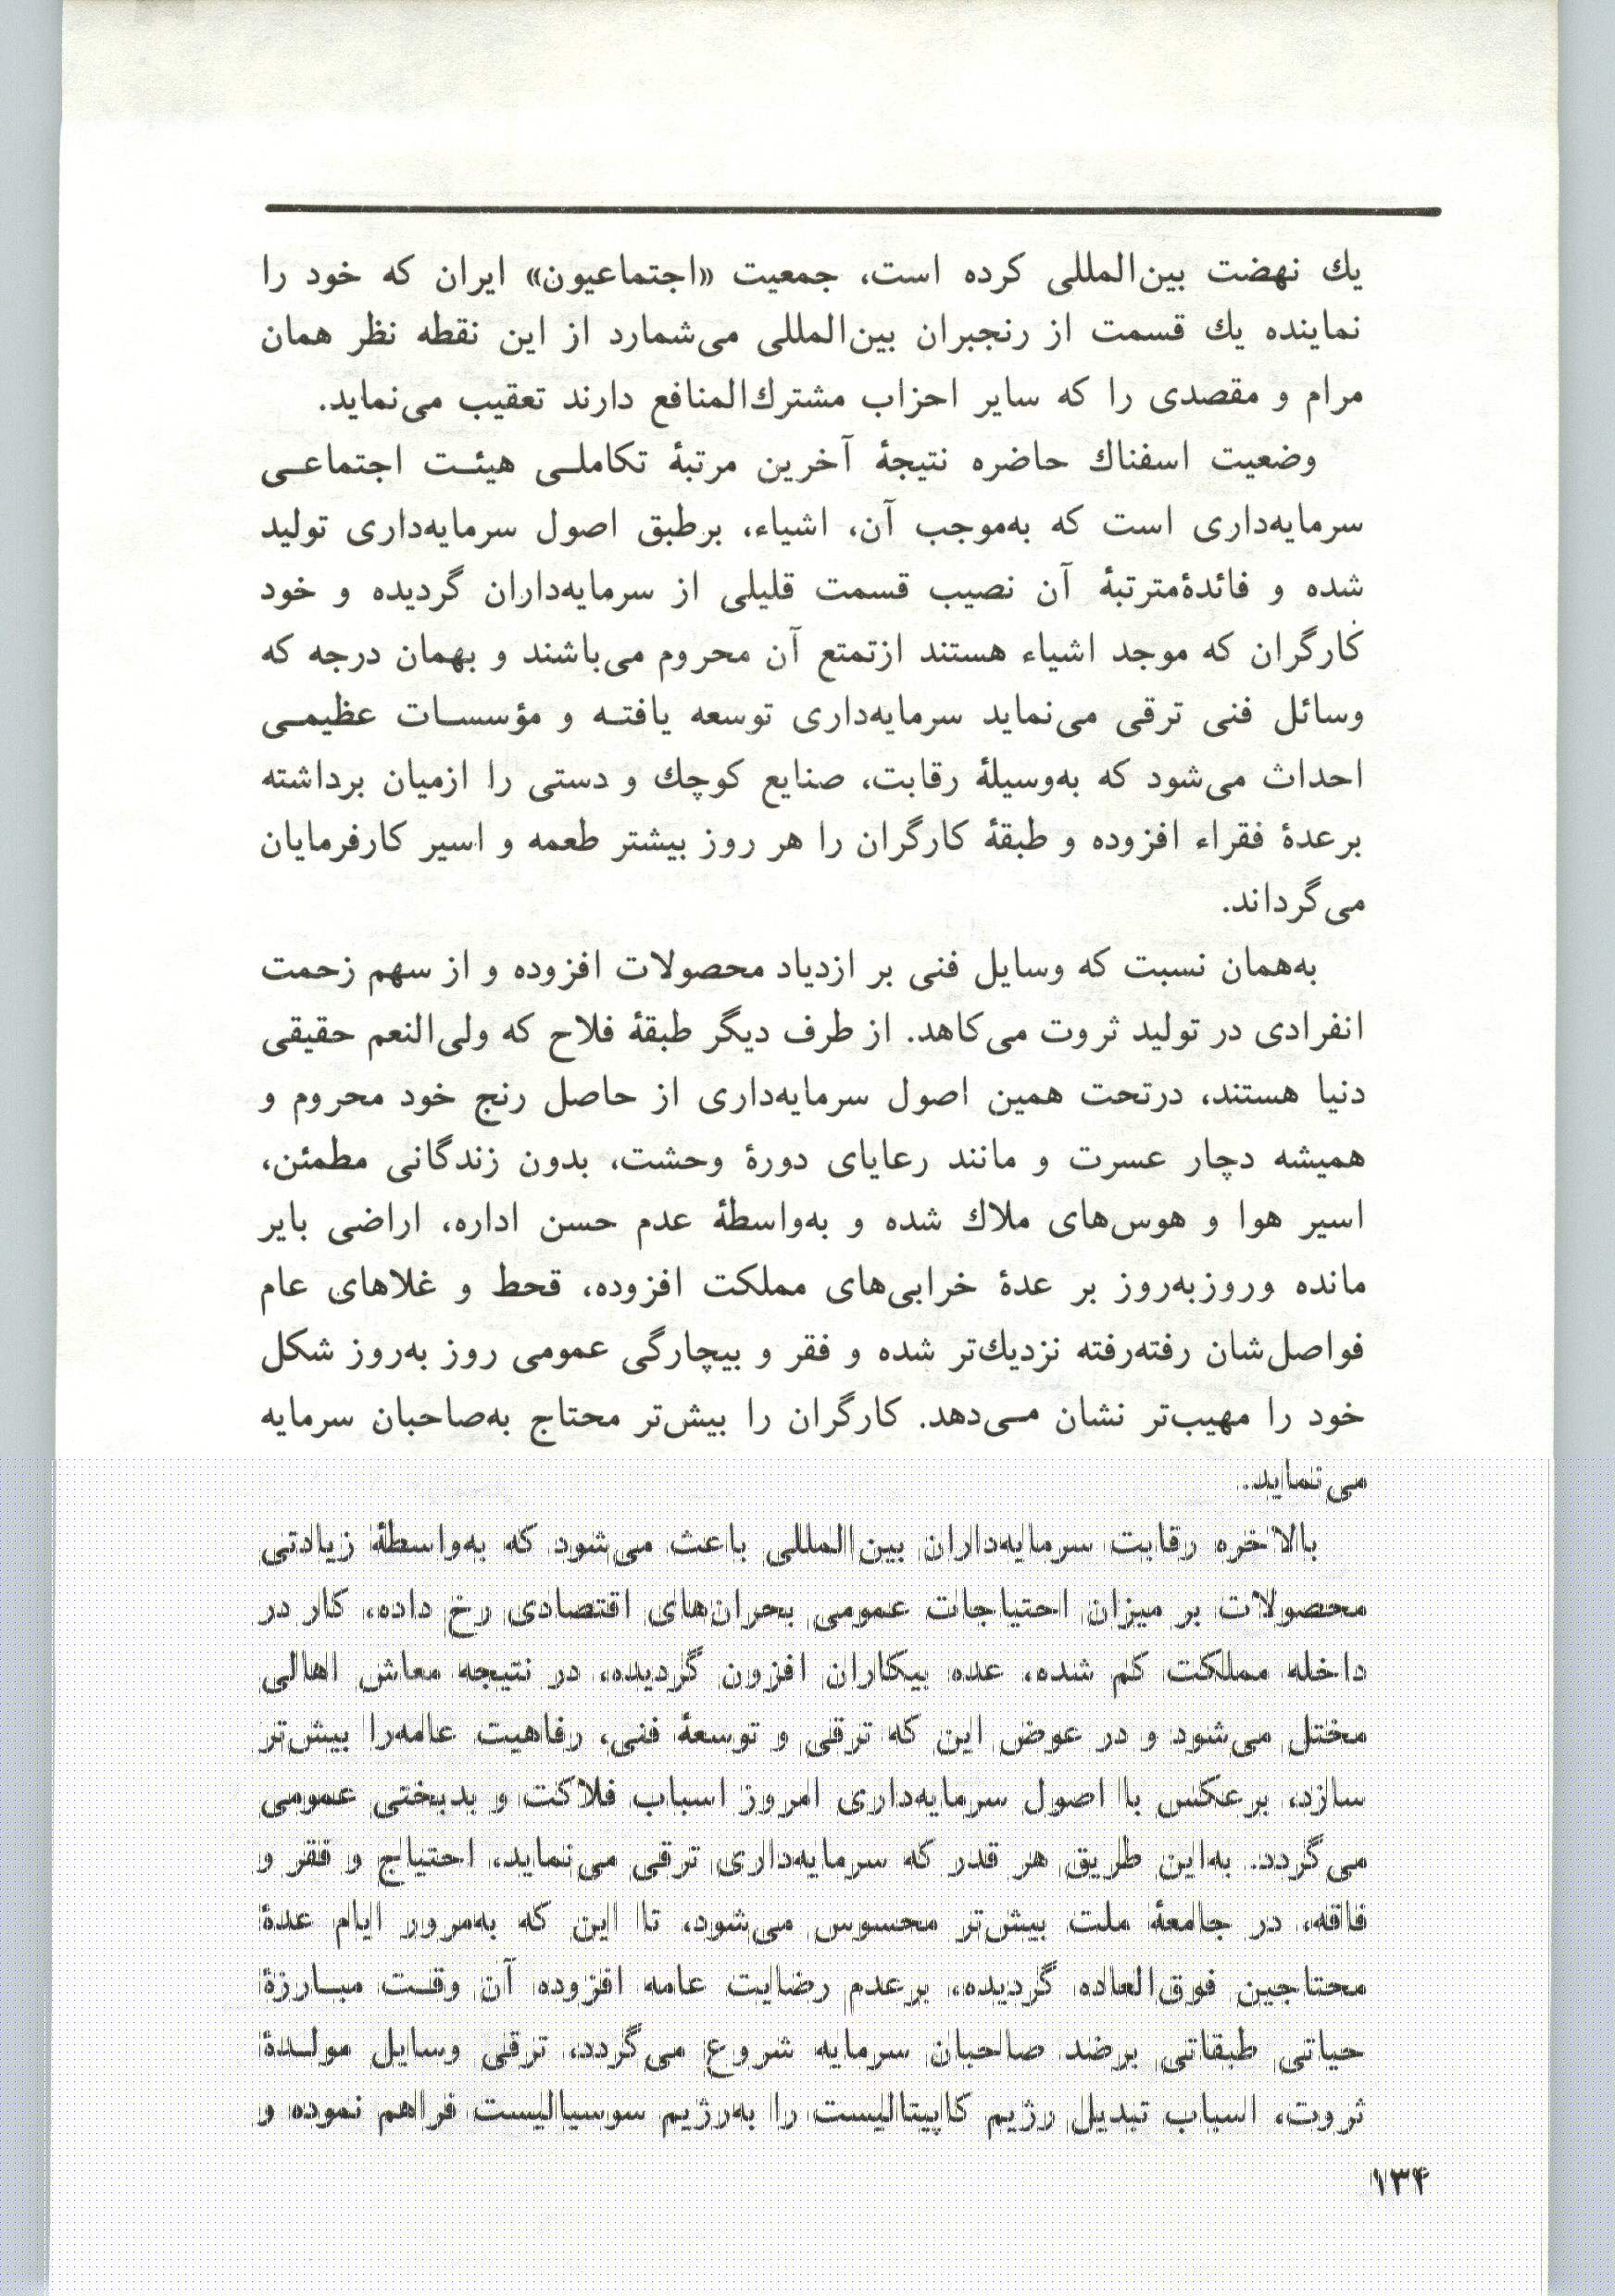 یك نهضت بین‌المللی کرده است، جمعیت «اجتماعیون» ایران که خود را
نماینده یك قسمت از رنجبران بین‌المللی می‌شمارد از این نقطه نظر همان
مرام و مقصدی را که سایر احزاب مشترك‌المنافع دارند تعقیب می‌نماید.
وضعیت اسفناك حاضره نتیجهٔ آخرین مرتبهٔ تکاملـی هیئـت اجتماعـی
سرمایه‌داری است که به‌موجب آن، اشیاء، برطبق اصول سرمایه‌داری تولید
شده و فائدهٔ‌مترتبهٔ آن نصیب قسمت قلیلی از سرمایه‌داران گردیده و خود
کارگران که موجد اشیاء هستند ازتمتع آن محروم می‌باشند و بهمان درجه که
وسائل فنی ترقی می‌نماید سرمایه‌داری توسعه یافتـه و مؤسسـات عظیمـی
احداث می‌شود که به‌وسیلهٔ رقابت، صنایع کوچك و دستی را ازمیان برداشته
برعدهٔ فقراء افزوده و طبقهٔ کارگران را هر روز بیشتر طعمه و اسیر کارفرمایان
می‌گرداند.
به‌همان نسبت که وسایل فنی بر ازدیاد محصولات افزوده و از سهم زحمت
انفرادی در تولید ثروت می‌کاهد. از طرف دیگر طبقهٔ فلاح که ولی‌النعم حقیقی
دنیا هستند، درتحت همین اصول سرمایه‌داری از حاصل رنج خود محروم و
همیشه دچار عسرت و مانند رعایای دورهٔ وحشت، بدون زندگانی مطمئن،
اسیر هوا و هوس‌های ملاك شده و به‌واسطهٔ عدم حسن اداره، اراضی بایر
مانده وروزبه‌روز بر عدهٔ خرابی‌های مملکت افزوده، قحط و غلاهای عام
فواصل‌شان رفته‌رفته نزدیك‌تر شده و فقر و بیچارگی عمومی روز به‌روز شکل
خود را مهیب‌تر نشان مـی‌دهد. کارگران را بیش‌تر محتاج به‌صاحبان سرمایه
می‌نماید.
بالاخره رقابت سرمایه‌داران بین‌المللی باعث می‌شود که به‌واسطهٔ زیادتی
محصولات بر میزان احتیاجات عمومی بحران‌های اقتصادی رخ داده، کار در
داخله مملکت کم شده، عده بیکاران افزون گردیده، در نتیجه معاش اهالی
مختل می‌شود و در عوض این که ترقی و توسعهٔ فنی، رفاهیت عامه‌را بیش‌تر
سازد، برعکس با اصول سرمایه‌داری امروز اسباب فلاکت و بدبختی عمومی
می‌گردد. به‌این طریق هر قدر که سرمایه‌داری ترقی می‌نماید، احتیاج و فقر و
فاقه، در جامعهٔ ملت بیش‌تر محسوس می‌شود، تا این که به‌مرور ایام عدهٔ
محتاجین فوق‌العاده گردیده، برعدم رضایت عامه افزوده آن وقـت مبـارزهٔ
حیاتی طبقاتی برضد صاحبان سرمایه شروع می‌گردد، ترقی وسایل مولـدهٔ
ثروت، اسباب تبدیل رژیم کاپیتالیست را به‌رژیم سوسیالیست فراهم نموده و
۱۳۴